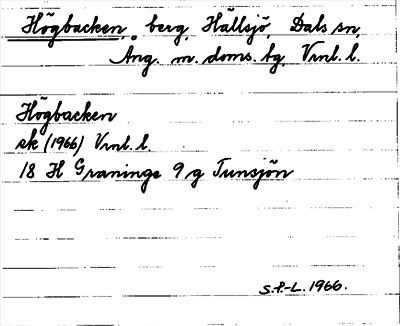 Högbacken, berg, Hällsjö, Dals sn,
Ång. m. doms. tg, Vnl. l.
Högbacken
sk (1966) Vnl. l.
18 H Graninge 9 g Tunsjön
S.P-L. 1966.